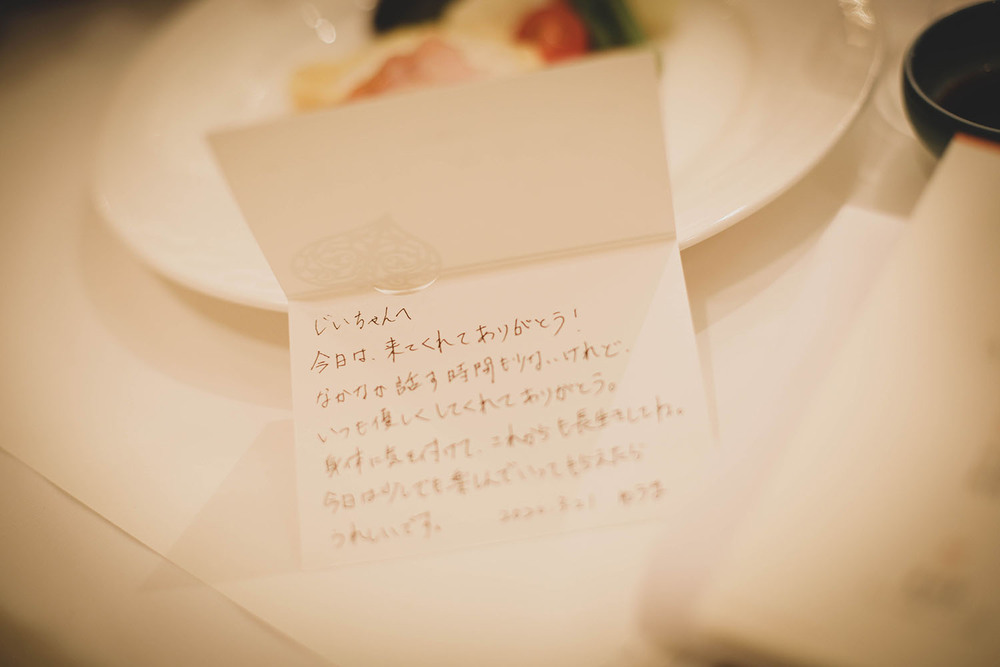 じいちゃんへ
今日は、来てくれてありがとう!
なかなか話す時間も少ないけれど、
いつも優しくしてくれてありがとう。
身体に気を付けて、これからも長生きしてね。
今日は少しでも楽しんでいってもらえたら
うれしいです。 2022.3.21